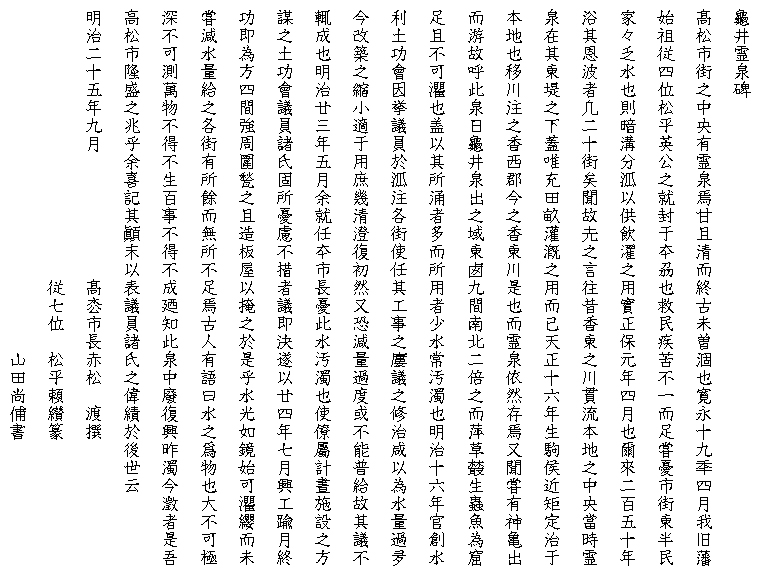 龜井霊泉碑
髙松市街之中央有霊泉焉甘且清而終古未曽涸也寛永十九秊四月我旧藩
始祖従四位松平英公之就封于夲藩也救民疾苦不一而足甞憂市街東半民
家々乏水也則暗溝分派以供飲濯之用實正保元年四月也爾來二百五十年
浴其恩波者凢二十街矣聞故老之言往昔香東之川貫流本地之中央當時霊
泉在其東堤之下蓋唯充田畝灌漑之用而已天正十六年生駒侯近矩定治于
本地也移川注之香西郡今之香東川是也而霊泉依然存焉又聞甞有神亀出
而游故呼此泉曰龜井泉出之域東西九間南北二倍之而萍草叢生蟲魚為窟
足且不可灑也盖以其所涌者多而所用者少水常汚濁也明治十六年官創水
利土功會因挙議員於派注各街使任其工事之屢議之修治咸以為水量過多
今改築之縮小適于用庶幾清澄復初然又恐減量過度或不能普給故其議不
輒成也明治廿三年五月余就任夲市長憂此水汚濁也使僚屬計畫施設之方
謀之土功會議員諸氏固所憂慮不措者議即決遂以廿四年七月興工踰月終
功即為方四間強周圍甃之且造板屋以掩之於是乎水光如鏡始可灑纓而未
甞減水量給之各街有所餘而無所不足焉古人有語曰水之爲物也大不可極
深不可測萬物不得不生百事不得不成廼知此泉中廢復興昨濁今激者是吾
高松市隆盛之兆乎余喜記其顚末以表議員諸氏之偉績於後世云
明治二十五年九月
髙枩市長赤松　渡撰
従七位　松平頼纉篆
山田尚俌書